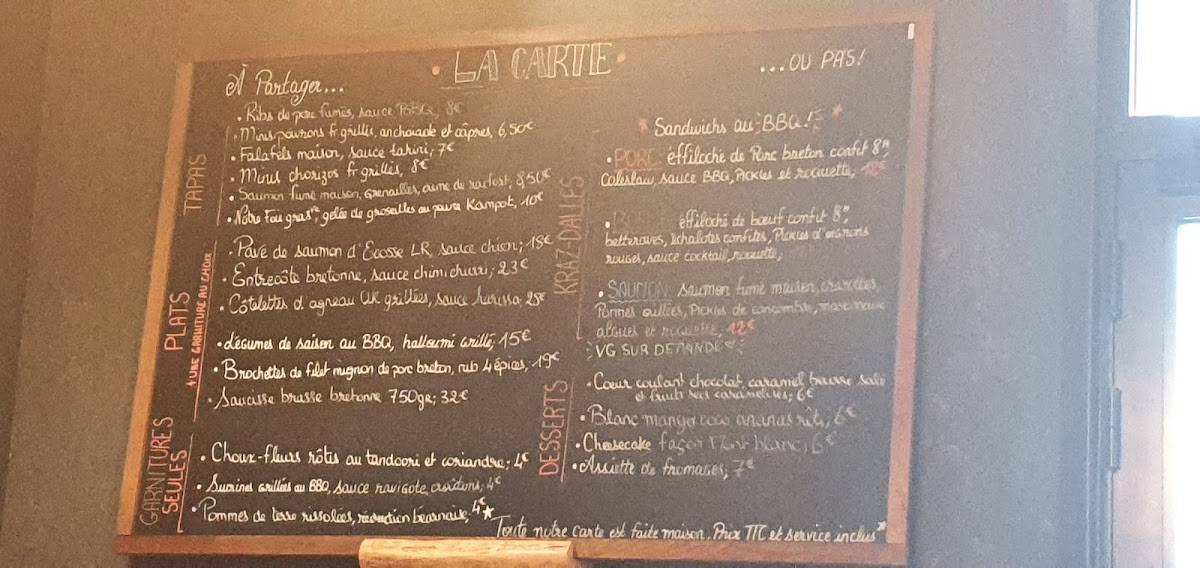 LA CARTE
À Partager...
TAPAS
• Ribs de porc fumés, sauce BBQ, 8€
• Minis poivrons fr grillés, anchoïade et câpres, 6,50€
• Falafels maison, sauce tahini, 7€
• Minis chorizos fr grillés, 8€
• Saumon fumé maison, grenailles, crème de raifort, 8,50€
• Notre Foie gras, gelée de groseilles au poivre Kampot, 10€
PLATS
+ UNE GARNITURE AU CHOIX
• Pavé de saumon d'Ecosse LR, sauce chien; 18€
• Entrecôte bretonne, sauce chimichurri; 23€
• Côtelettes d'agneau UK grillées, sauce harissa, 25€
• Légumes de saison au BBQ, halloumi grillé, 15€
• Brochettes de filet mignon de porc breton, rub 4 épices, 19€
• Saucisse brasse bretonne 750gr; 32€
GARNITURES
SEULES
• Choux-fleurs rôtis au tandoori et coriandre; 4€
• Sucrines grillées au BBQ, sauce ravigote, croûtons; 4€
• Pommes de terre rissolées, réduction béarnaise, 4€
...OU PAS!
KRAZ-DALLES
Sandwichs au BBQ!
• PORC éffiloché de Porc breton confit 8h,
Coleslaw, sauce BBQ, Pickles et roquette, 12€
• éffiloché de bœuf confit 8h,
betteraves, échalotes confites, Pickles d'oignons
rouges, sauce cocktail, roquette,
• SAUMON saumon fumé maison, crevettes,
Pommes grillées, Pickles de concombre,
algues et roquette, 12€
VG SUR DEMANDE
DESSERTS
• Cœur coulant chocolat, caramel beurre salé
et fruits secs caramélisés; 6€
• Blanc mangercoco ananas rôti, 6€
• Cheesecake façon Mont blanc, 6€
• Assiette de fromages, 7€
*Toute notre carte est faite maison. Prix TTC et service inclus*